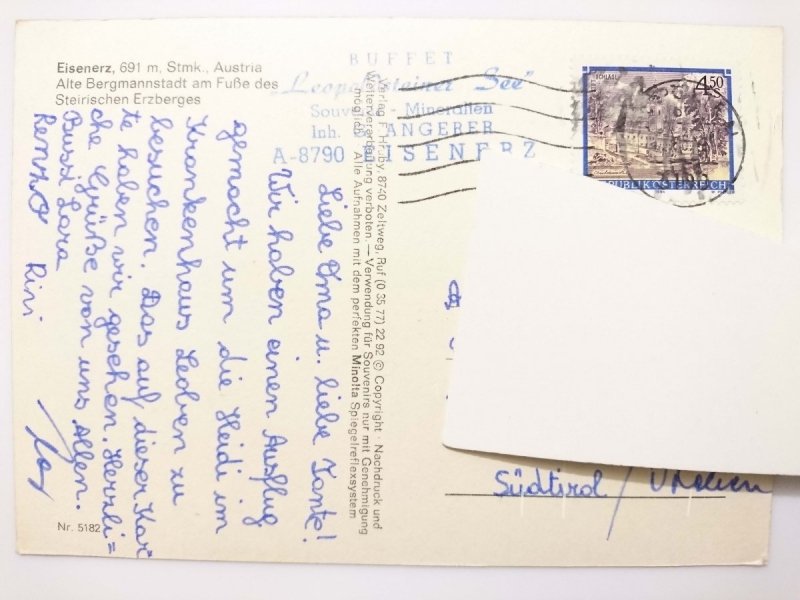 Eisenerz, 691 m, Stmk., Austria
Alte Bergmannstadt am Fuße des
Steirischen Erzberges
BUFFET
„Leopoldsteiner See"
Souvenir - Mineralien
Inh. ANGERER
A-8790 EISENERZ
SCHLÄGL
4.50
REPUBLIK ÖSTERREICH
Liebe Oma u. liebe Tante!
Wir haben einen Ausflug
gemacht um die Heidi im
Krankenhaus Leoben zu
besuchen. Das auf dieser Kar
te haben wir gesehen. Herzli=
che Grüße von uns Allen.
Bussi Lara
Renko Rini
Verlag F. Hruby, 8740 Zeltweg, Ruf (0 35 77) 22 92 © Copyright · Nachdruck und
Weiterverarbeitung verboten. — Verwendung für Souvenirs nur mit Genehmigung
möglich. Alle Aufnahmen mit dem perfekten Minolta Spiegelreflexsystem
Südtirol / Italien
Nr. 5182